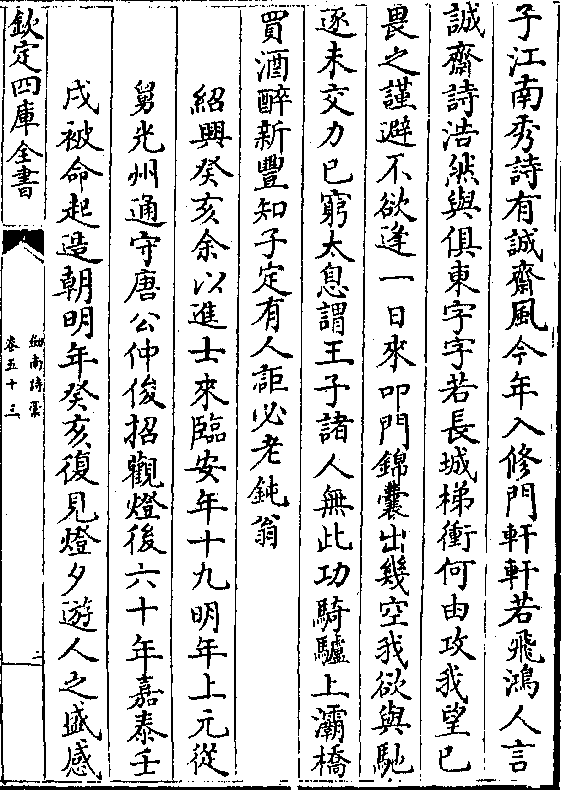 子江南秀詩有誠齋風今年入修門軒軒若飛鴻人言
誠齋詩浩然與俱東字字若長城梯衝何由攻我望已
畏之謹避不欲逢一日來叩門錦囊出幾空我欲與馳
逐未交力已窮太息謂王子諸人無此功騎驢上灞橋
買酒醉新豐知子定有人詎必老鈍翁
紹興癸亥余以進士來臨安年十九明年上元從
舅光州通守唐公仲俊招觀燈後六十年嘉泰壬
戌被命起造朝明年癸亥復見燈夕遊人之盛感
欽定四庫全書
劍南詩稾
卷五十三
二